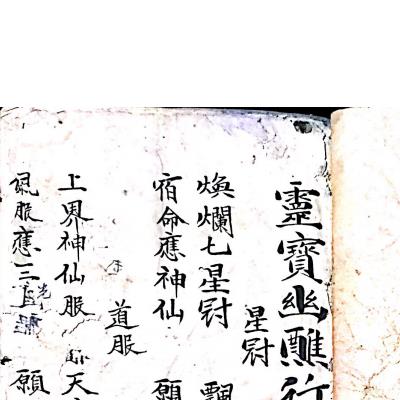 靈寶幽醮行
星尉
煥爛七星尉 飄
宿命應神仙 願
道服
上界神仙服 天
服應三 願